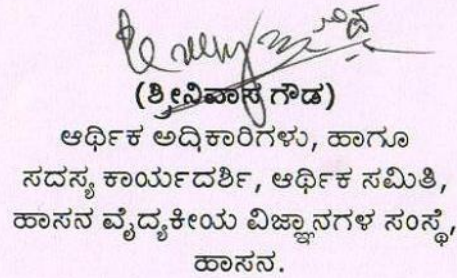 (ಶ್ರೀನಿವಾಸ ಗೌಡ)
ಆರ್ಥಿಕ ಅಧಿಕಾರಿಗಳು, ಹಾಗೂ
ಸದಸ್ಯ ಕಾರ್ಯದರ್ಶಿ, ಆರ್ಥಿಕ ಸಮಿತಿ,
ಹಾಸನ ವೈದ್ಯಕೀಯ ವಿಜ್ಞಾನಗಳ ಸಂಸ್ಥೆ,
ಹಾಸನ.